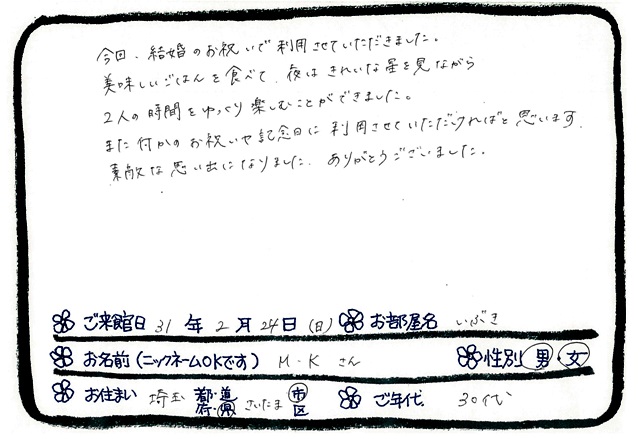 今回、結婚のお祝いで利用させていただきました。
美味しいごはんを食べて、夜はきれいな星を見ながら
2人の時間をゆっくり楽しむことができました。
また何かのお祝いや記念日に利用させていただければと思います。
素敵な思い出になりました。ありがとうございました。
ご来館日 31 年 2 月 24 日 (日) お部屋名 いぶき
お名前(ニックネームOKです) M・K さん 性別 男・女
お住まい 埼玉 都・道・府・県 さいたま 市・区 ご年代 30代